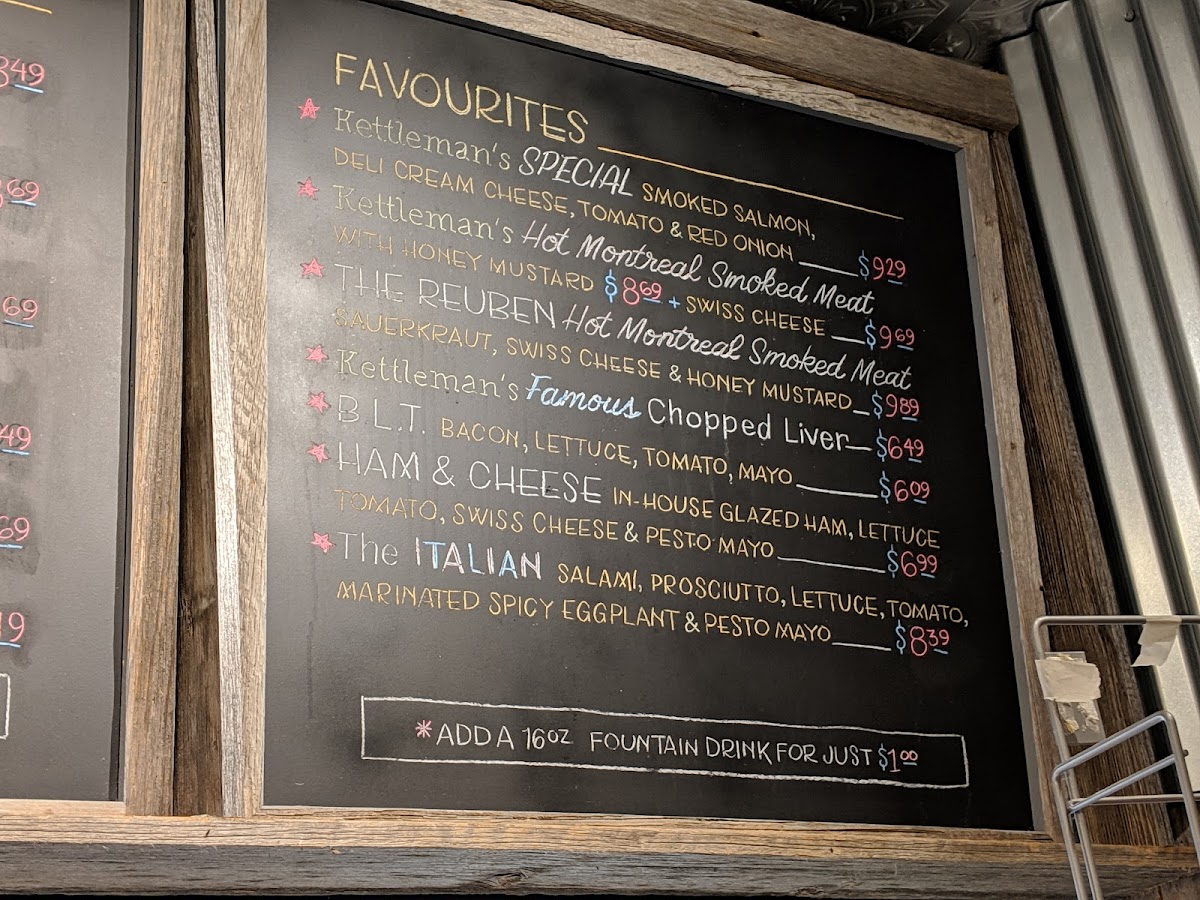 FAVOURITES
Kettleman's SPECIAL SMOKED SALMON,
DELI CREAM CHEESE, TOMATO & RED ONION $9.29
Kettleman's Hot Montreal Smoked Meat
WITH HONEY MUSTARD $8.69 + SWISS CHEESE $9.69
THE REUBEN Hot Montreal Smoked Meat
SAUERKRAUT, SWISS CHEESE & HONEY MUSTARD $9.89
Kettleman's Famous Chopped Liver $6.49
B.L.T. BACON, LETTUCE, TOMATO, MAYO $6.09
HAM & CHEESE IN-HOUSE GLAZED HAM, LETTUCE
TOMATO, SWISS CHEESE & PESTO MAYO $6.99
The ITALIAN SALAMI, PROSCIUTTO, LETTUCE, TOMATO,
MARINATED SPICY EGGPLANT & PESTO MAYO $8.39
*ADD A 16oz FOUNTAIN DRINK FOR JUST $1.00